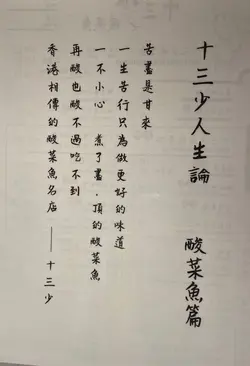 十三少人生論
酸菜魚篇
苦盡是甘來
一生苦行只為做更好的味道
一不小心 煮了盡.頂的酸菜魚
再酸也酸不過吃不到
香港相傳的酸菜魚名店 —— 十三少